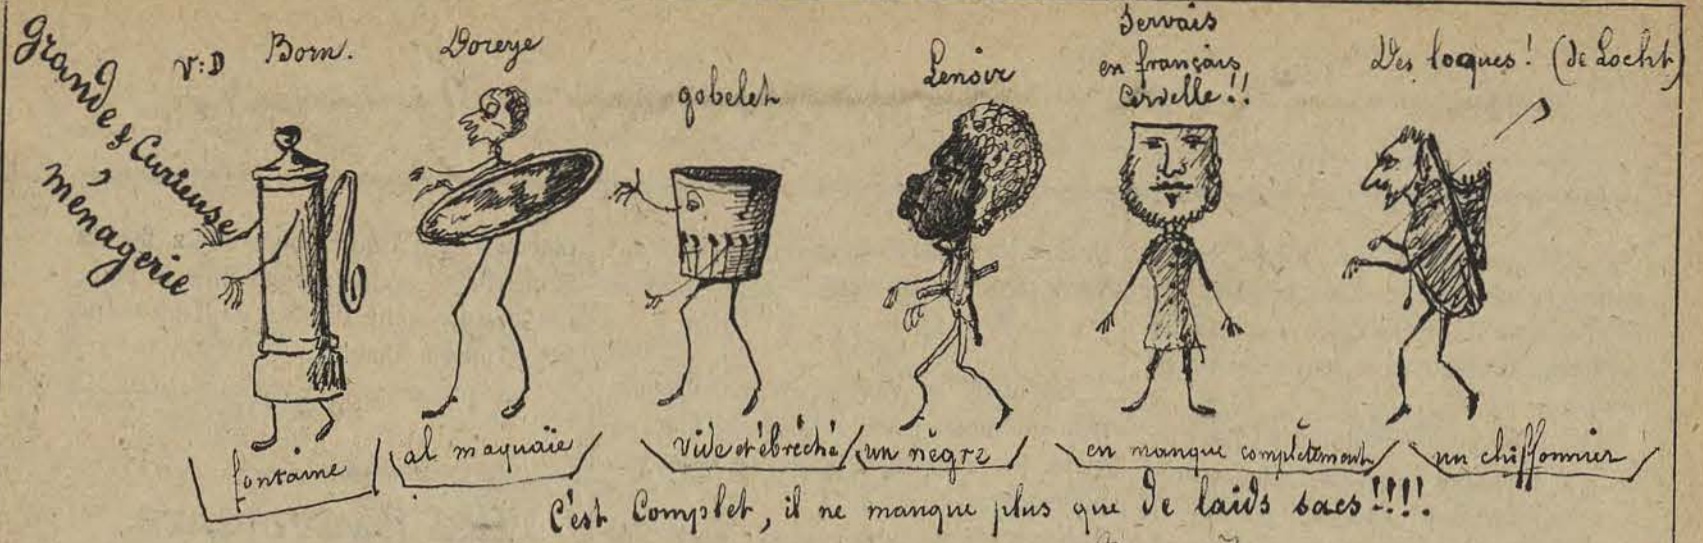 Grande & Curieuse
ménagerie
V:D Born.
Doreye
gobelet
Lenoir
Servais
en français
Cervelle!!
Des loques! (de Locht)
fontaine
al maquaïe
vide et ébréché
un nègre
en manque complètement
un chiffonnier
C'est Complet, il ne manque plus que de laids sacs!!!!